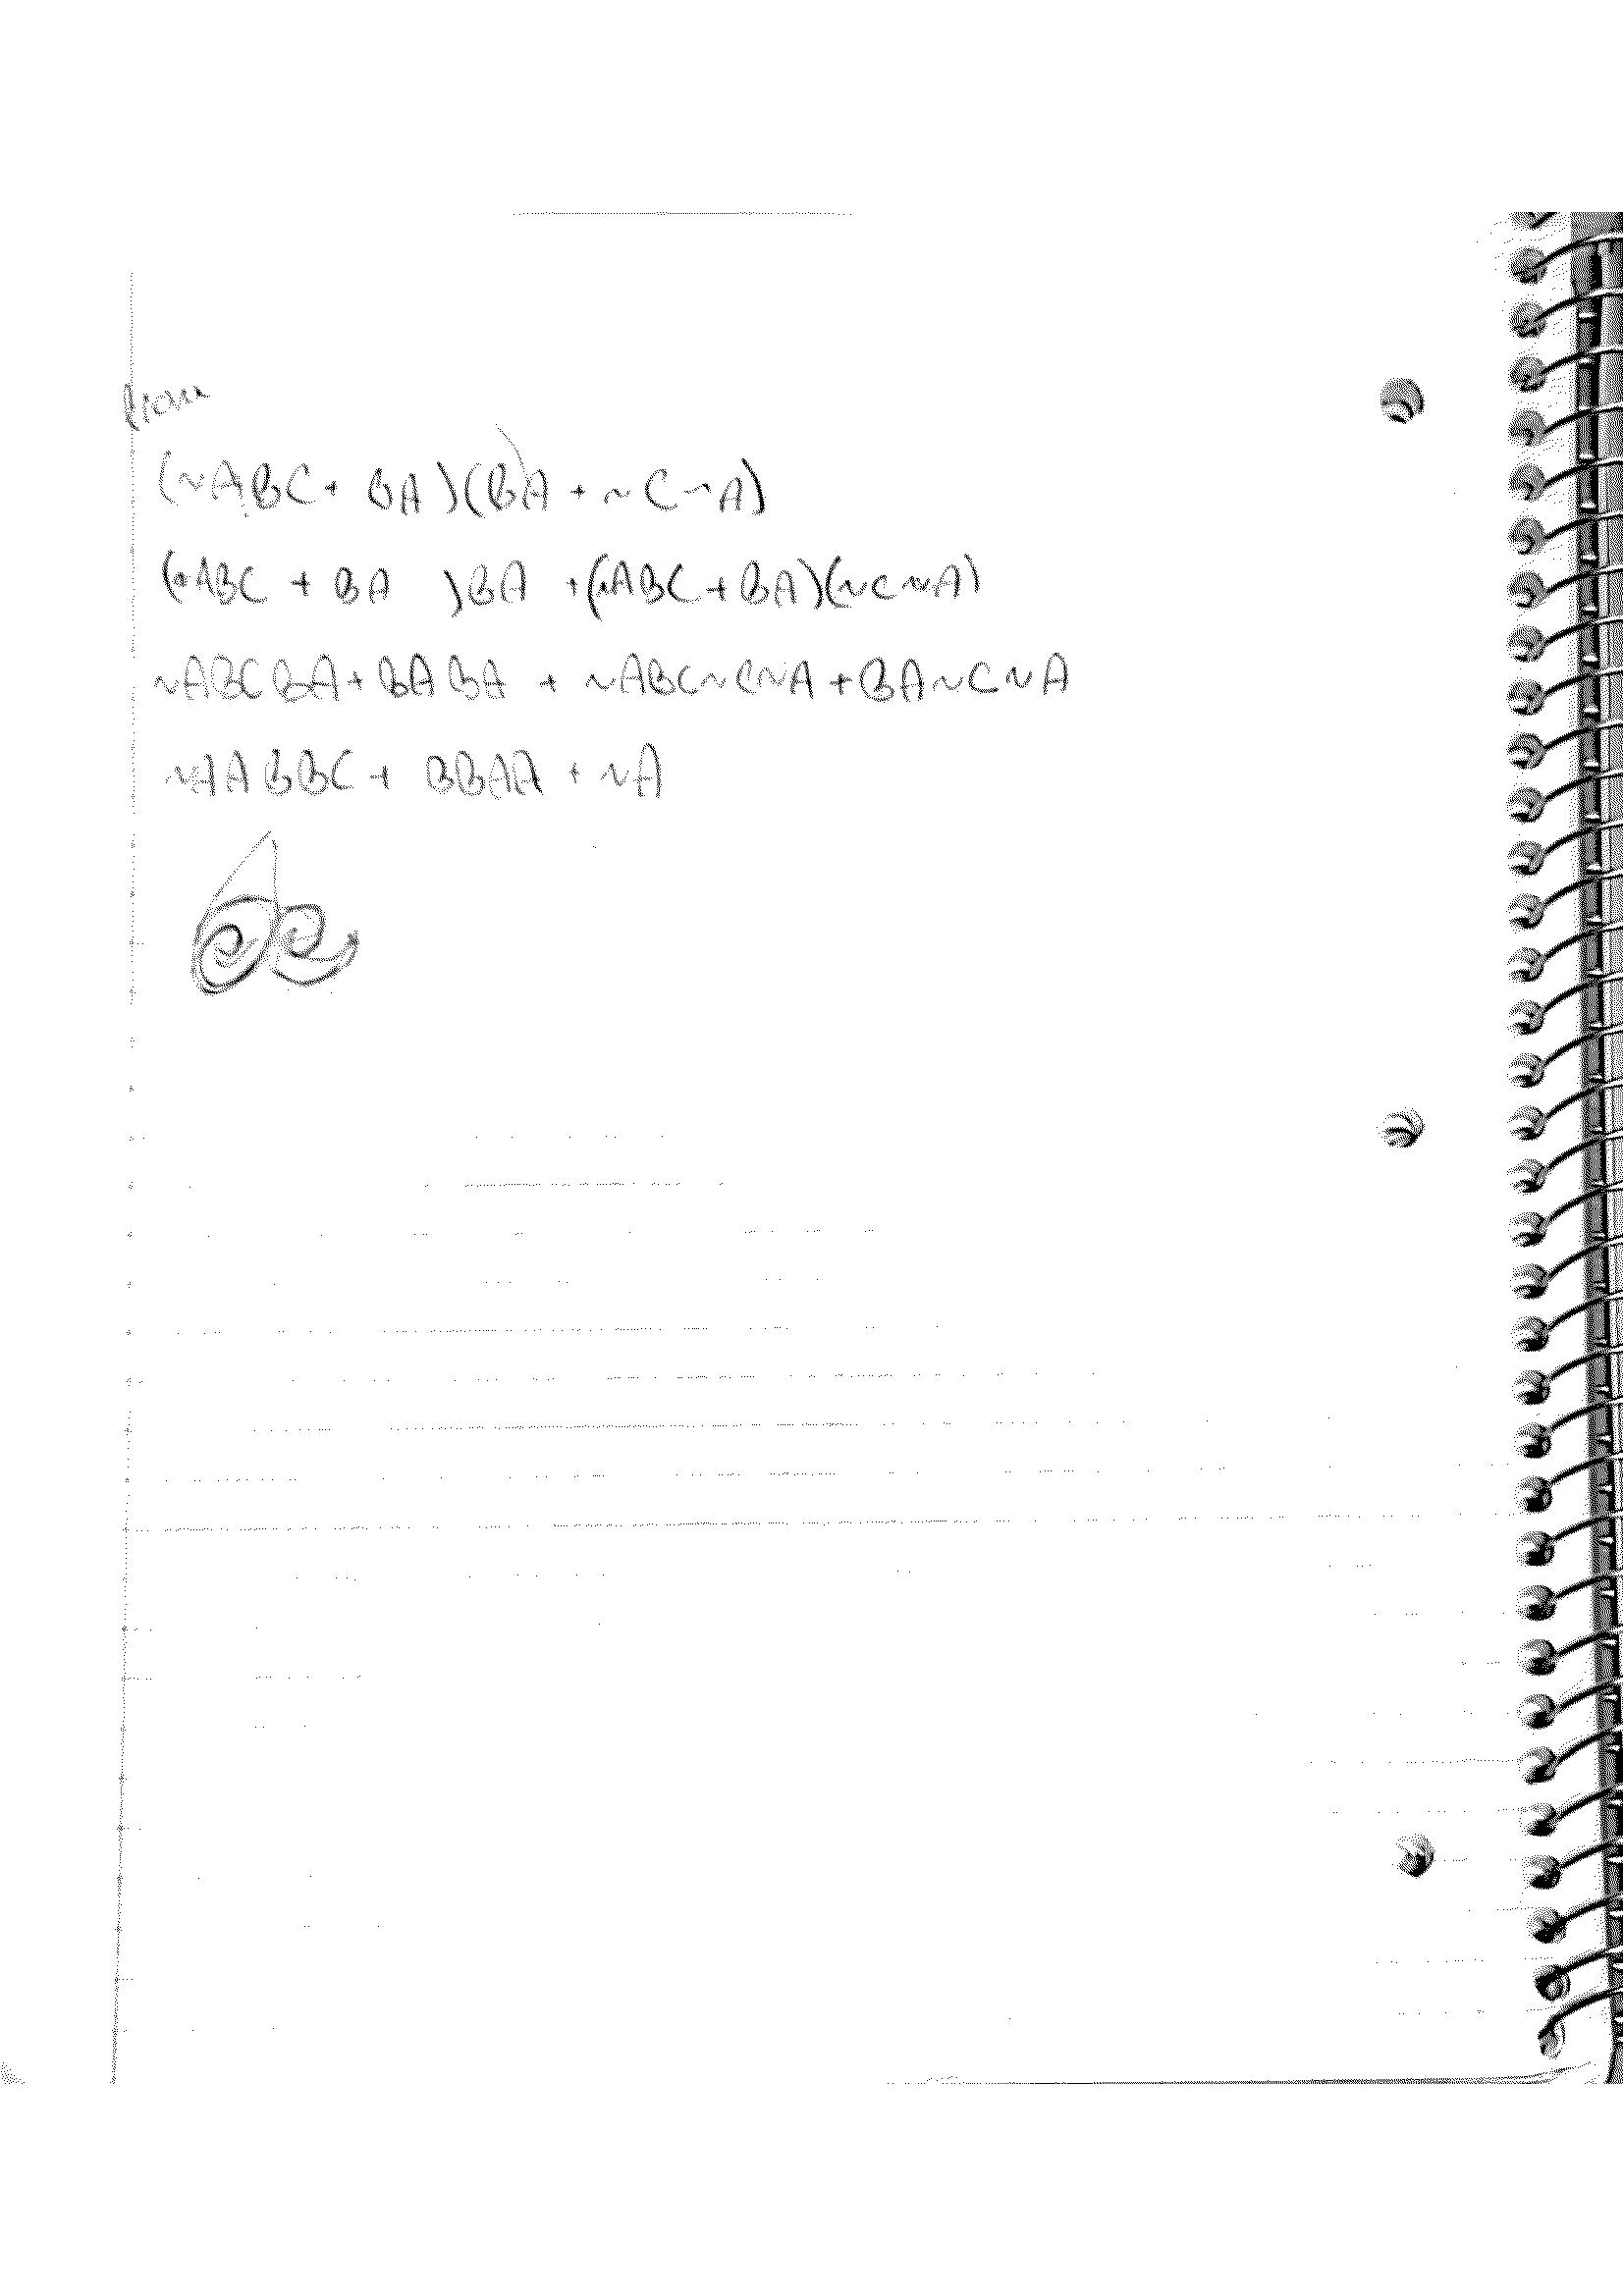 (~ABC + BA)(BA + ~C~A)
(~ABC + BA )BA +(~ABC+BA)(~C~A)
~ABCBA+BABA + ~ABC~C~A+BA~C~A
~AABBC + BBAA + ~A